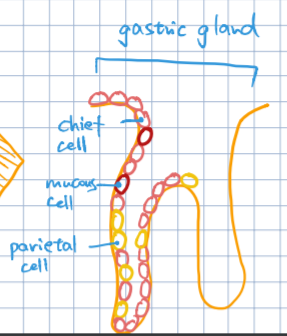 gastric gland
chief
cell
mucous
cell
parietal
cell